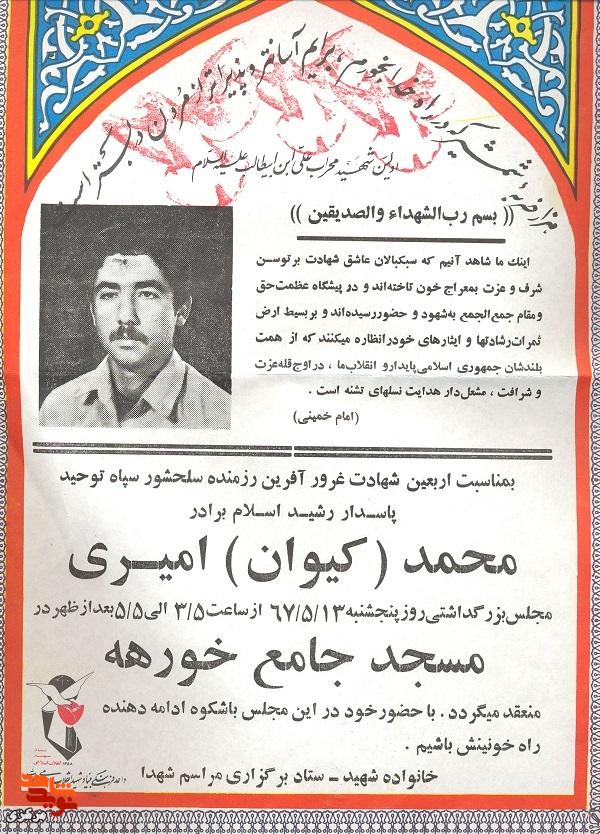 هزار ضربه شمشیر که در راه خدا بخورم، برایم آسانتر و پذیراتر از مردن در بستر است
اولین شهید محراب علی ابن ابیطالب علیه السلام
(( بسم رب الشهداء والصدیقین ))
اینك ما شاهد آنیم که سبکبالان عاشق شهادت برتوسن
شرف و عزت بمعراج خون تاخته‌اند و در پیشگاه عظمت حق
و مقام جمع‌الجمع به‌شهود و حضور رسیده‌اند و بر بسیط ارض
ثمرات رشادتها و ایثارهای خود را نظاره میکنند که از همت
بلندشان جمهوری اسلامی پایدار و انقلاب ما ، در اوج قله عزت
و شرافت ، مشعل‌دار هدایت نسلهای تشنه است .
(امام خمینی)
بمناسبت اربعین شهادت غرور آفرین رزمنده سلحشور سپاه توحید
پاسدار رشید اسلام برادر
محمد ( کیوان ) امیری
مجلس بزرگداشتی روز پنجشنبه ۶۷/۵/۱۳ از ساعت ۳/۵ الی ۵/۵ بعد از ظهر در
مسجد جامع خورهه
منعقد میگردد . با حضور خود در این مجلس باشکوه ادامه دهنده
راه خونینش باشیم .
خانواده شهید - ستاد برگزاری مراسم شهدا
بنیاد
شهید
انقلاب اسلامی
۱۳۵۸
واحد فرهنگی بنیاد شهید انقلاب اسلامی
نوید شاهد